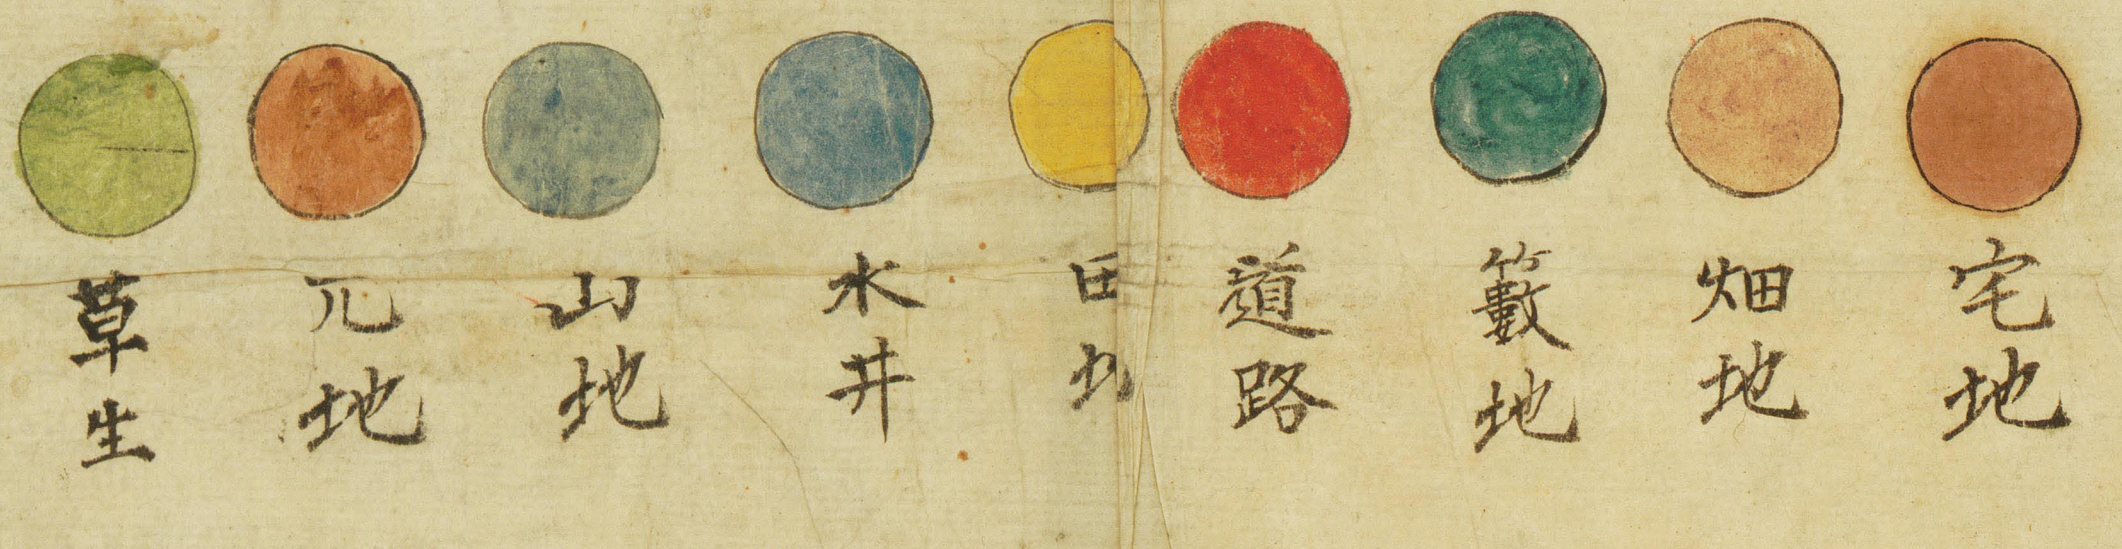 宅地
畑地
籔地
道路
田地
水井
山地
兀地
草生